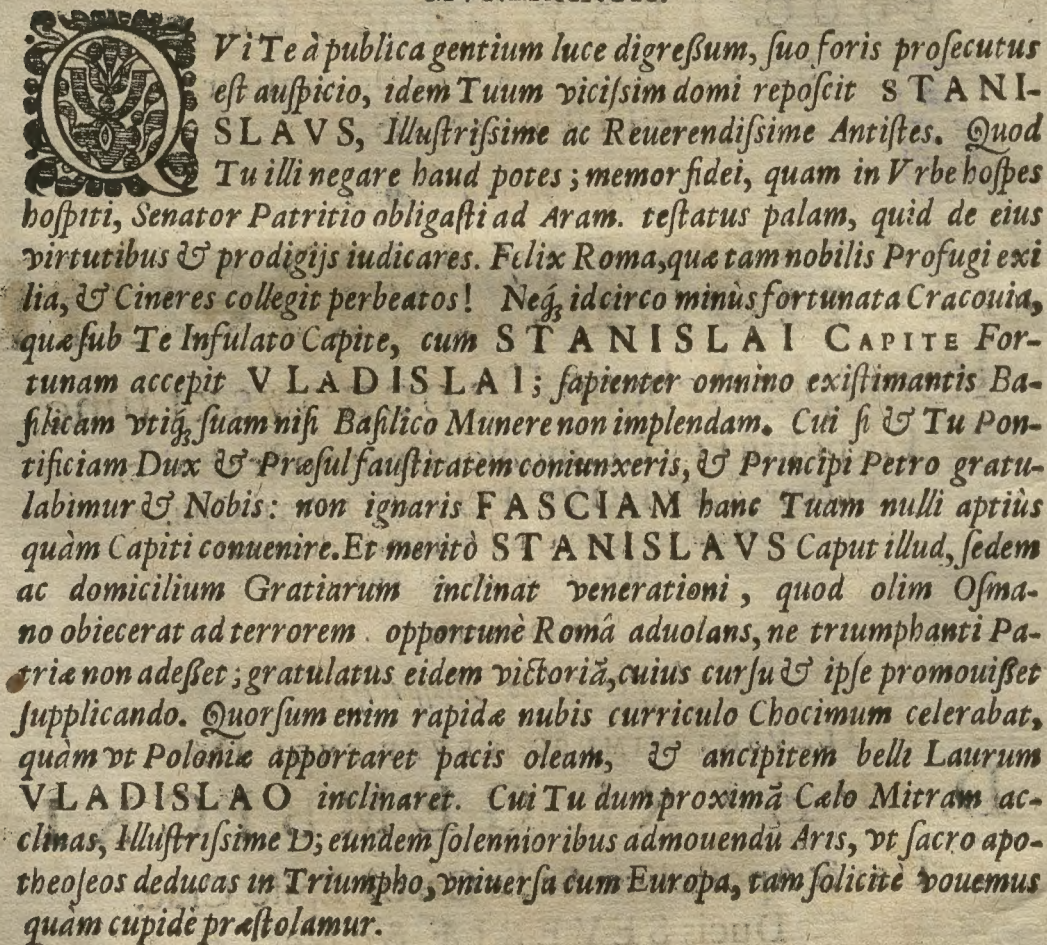 QVi Te à publica gentium luce digreßum, ſuo foris proſecutus
eſt auſpicio, idem Tuum viciſsim domi repoſcit STANI-
SLAVS, Illuſtriſsime ac Reuerendiſsime Antiſtes. Quod
Tu illi negare haud potes; memor fidei, quam in Vrbe hoſpes
hoſpiti, Senator Patritio obligaſti ad Aram. teſtatus palam, quid de eius
virtutibus & prodigijs iudicares. Felix Roma, quæ tam nobilis Profugi exi
lia, & Cineres collegit perbeatos! Neq́; idcirco minùs fortunata Cracouia,
quæ ſub Te Infulato Capite, cum STANISLAI CAPITE For-
tunam accepit VLADISLAI; ſapienter omnino exiſtimantis Ba-
ſilicam vtiq́; ſuam niſi Baſilico Munere non implendam. Cui ſi & Tu Pon-
tificiam Dux & Præſul fauſtitatem coniunxeris, & Principi Petro gratu-
labimur & Nobis: non ignaris FASCIAM hanc Tuam nulli aptiùs
quàm Capiti conuenire. Et meritò STANISLAVS Caput illud, ſedem
ac domicilium Gratiarum inclinat venerationi, quod olim Oſma-
no obiecerat ad terrorem. opportunè Româ aduolans, ne triumphanti Pa-
triæ non adeßet; gratulatus eidem victoriā, cuius curſu & ipſe promouißet
ſupplicando. Quorſum enim rapidæ nubis curriculo Chocimum celerabat,
quàm vt Poloniæ apportaret pacis oleam, & ancipitem belli Laurum
VLADISLAO inclinaret. Cui Tu dum proximā Cælo Mitram ac-
clinas, Illuſtriſsime D; eundem ſolennioribus admouendū Aris, vt ſacro apo-
theoſeos deducas in Triumpho, vniuerſa cum Europa, tam ſolicitè vouemus
quàm cupidè præſtolamur.